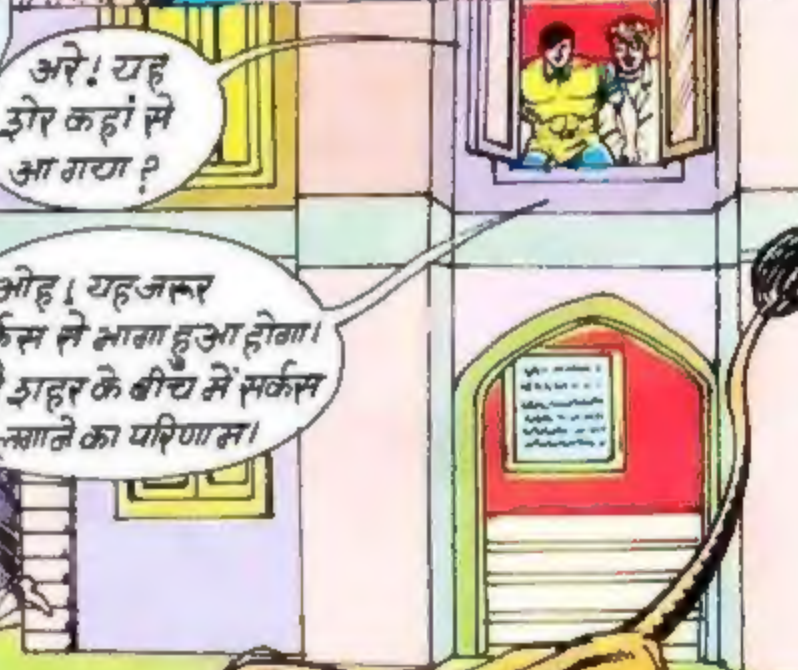 अरे! यह
शेर कहां से
आ गया?
ओह! यह जरूर
से भागा हुआ होगा।
शहर के बीच में सर्कस
लगाने का परिणाम।